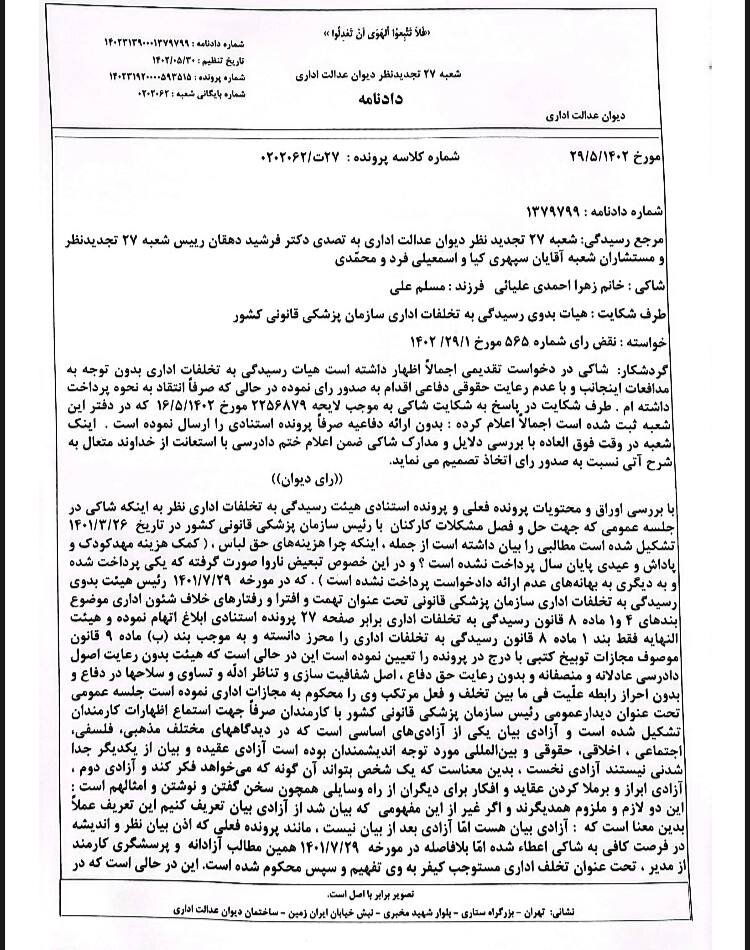 «فَلَا تَتَّبِعُوا الْهَوَىٰ أَنْ تَعْدِلُوا»
شماره دادنامه : ۱۴۰۲۳۱۳۹۰۰۰۱۳۷۹۷۹۹
تاریخ تنظیم : ۱۴۰۲/۰۵/۳۰
شماره پرونده : ۱۴۰۲۳۱۹۲۰۰۰۰۵۹۳۵۱۵
شماره بایگانی شعبه : ۰۲۰۲۰۶۲
شعبه ۲۷ تجدیدنظر دیوان عدالت اداری
دادنامه
دیوان عدالت اداری
مورخ ۲۹/۵/۱۴۰۲ شماره کلاسه پرونده : ۲۷ت/۰۲۰۲۰۶۲
شماره دادنامه : ۱۳۷۹۷۹۹
مرجع رسیدگی: شعبه ۲۷ تجدید نظر دیوان عدالت اداری به تصدی دکتر فرشید دهقان رییس شعبه ۲۷ تجدیدنظر
و مستشاران شعبه آقایان سپهری کیا و اسمعیلی فرد و محمّدی
شاکی : خانم زهرا احمدی علیائی فرزند : مسلم علی
طرف شکایت : هیات بدوی رسیدگی به تخلفات اداری سازمان پزشکی قانونی کشور
خواسته : نقض رای شماره ۵۶۵ مورخ ۲۹/۱/ ۱۴۰۲
گردشکار: شاکی در دخواست تقدیمی اجمالاً اظهار داشته است هیات رسیدگی به تخلفات اداری بدون توجه به
مدافعات اینجانب و با عدم رعایت حقوقی دفاعی اقدام به صدور رای نموده در حالی که صرفاً انتقاد به نحوه پرداخت
داشته ام . طرف شکایت در پاسخ به شکایت شاکی به موجب لایحه ۲۲۵۶۸۷۹ مورخ ۱۶/۵/۱۴۰۲ که در دفتر این
شعبه ثبت شده است اجمالاً اعلام کرده : بدون ارائه دفاعیه صرفاً پرونده استنادی را ارسال نموده است . اینک
شعبه در وقت فوق العاده با بررسی دلایل و مدارک شاکی ضمن اعلام ختم دادرسی با استعانت از خداوند متعال به
شرح آتی نسبت به صدور رای اتخاذ تصمیم می نماید.
((رای دیوان))
با بررسی اوراق و محتویات پرونده فعلی و پرونده استنادی هیئت رسیدگی به تخلفات اداری نظر به اینکه شاکی در
جلسه عمومی که جهت حل و فصل مشکلات کارکنان با رئیس سازمان پزشکی قانونی کشور در تاریخ ۱۴۰۱/۳/۲۶
تشکیل شده است مطالبی را بیان داشته است از جمله ، اینکه چرا هزینه‌های حق لباس ، ( کمک هزینه مهدکودک و
پاداش و عیدی پایان سال پرداخت نشده است ؟ و در این خصوص تبعیض ناروا صورت گرفته که یکی پرداخت شده
و به دیگری به بهانه‌های عدم ارائه دادخواست پرداخت نشده است ) . که در مورخه ۱۴۰۱/۷/۲۹ رئیس هیئت بدوی
رسیدگی به تخلفات اداری سازمان پزشکی قانونی تحت عنوان تهمت و افترا و رفتارهای خلاف شئون اداری موضوع
بندهای ۴ و۱ ماده ۸ قانون رسیدگی به تخلفات اداری برابر صفحه ۲۷ پرونده استنادی ابلاغ اتهام نموده و هیئت
النهایه فقط بند ۱ ماده ۸ قانون رسیدگی به تخلفات اداری را محرز دانسته و به موجب بند (ب) ماده ۹ قانون
موصوف مجازات توبیخ کتبی با درج در پرونده را تعیین نموده است این در حالی است که هیئت بدون رعایت اصول
دادرسی عادلانه و منصفانه و بدون رعایت حق دفاع ، اصل شفافیت سازی و تناظر ادلّه و تساوی و سلاحها در دفاع و
بدون احراز رابطه علّیت فی ما بین تخلف و فعل مرتکب وی را محکوم به مجازات اداری نموده است جلسه عمومی
تحت عنوان دیدارعمومی رئیس سازمان پزشکی قانونی کشور با کارمندان صرفاً جهت استماع اظهارات کارمندان
تشکیل شده است و آزادی بیان یکی از آزادی‌های اساسی است که در دیدگاههای مختلف مذهبی، فلسفی،
اجتماعی ، اخلاقی، حقوقی و بین‌المللی مورد توجه اندیشمندان بوده است آزادی عقیده و بیان از یکدیگر جدا
شدنی نیستند آزادی نخست ، بدین معناست که یک شخص بتواند آن گونه که می‌خواهد فکر کند و آزادی دوم ،
آزادی ابراز و برملا کردن عقاید و افکار برای دیگران از راه وسایلی همچون سخن گفتن و نوشتن و امثالهم است :
این دو لازم و ملزوم همدیگرند و اگر غیر از این مفهومی که بیان شد از آزادی بیان تعریف کنیم این تعریف عملاً
بدین معنا است که : آزادی بیان هست امّا آزادی بعد از بیان نیست ، مانند پرونده فعلی که اذن بیان نظر و اندیشه
در فرصت کافی به شاکی اعطاء شده امّا بلافاصله در مورخه ۱۴۰۱/۷/۲۹ همین مطالب آزادانه و پرسشگری کارمند
از مدیر ، تحت عنوان تخلف اداری مستوجب کیفر به وی تفهیم و سپس محکوم شده است. این در حالی است که در
تصویر برابر با اصل است.
نشانی: تهران - بزرگراه ستاری - بلوار شهید مخبری - نبش خیابان ایران زمین - ساختمان دیوان عدالت اداری